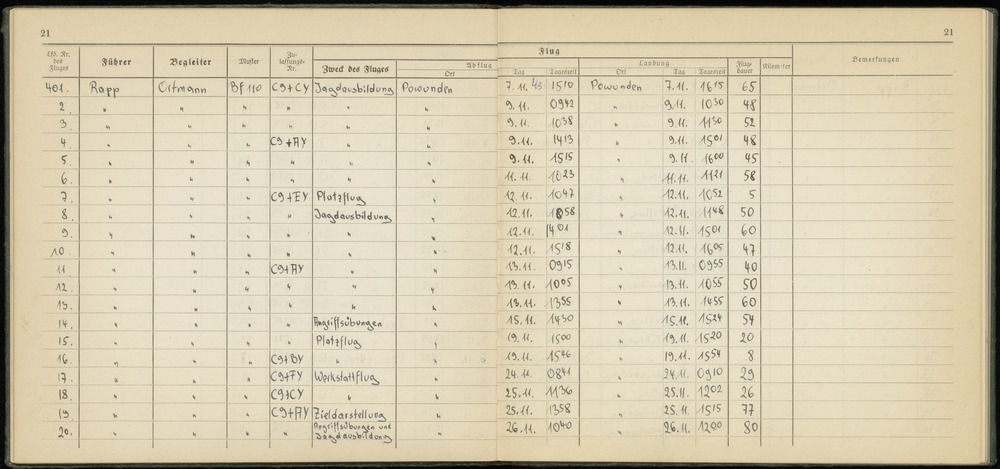 21 21
Lfd. Nr. des Fluges Führer Begleiter Muster Zulassungs-Nr. Zweck des Fluges Abflug Ort Flug Tag Tageszeit Landung Ort Tag Tageszeit Flugdauer Kilometer Bemerkungen
401. Rapp Ortmann Bf 110 C9+CY Jagdausbildung Powunden 7.11.43 1510 Powunden 7.11. 1615 65
2. " " " " " " 9.11. 0942 " 9.11. 1030 48
3. " " " " " " 9.11. 1038 " 9.11. 1130 52
4. " " " C9+AY " " 9.11. 1413 " 9.11. 1501 48
5. " " " " " " 9.11. 1515 " 9.11. 1600 45
6. " " " " " " 11.11. 1023 " 11.11. 1121 58
7. " " " C9+EY Platzflug " 12.11. 1047 " 12.11. 1052 5
8. " " " " Jagdausbildung " 12.11. 1058 " 12.11. 1148 50
9. " " " " " " 12.11. 1401 " 12.11. 1501 60
10. " " " " " " 12.11. 1518 " 12.11. 1605 47
11. " " " C9+AY " " 13.11. 0915 " 13.11. 0955 40
12. " " " " " " 13.11. 1005 " 13.11. 1055 50
13. " " " " " " 13.11. 1355 " 13.11. 1455 60
14. " " " " Angriffsübungen " 15.11. 1430 " 15.11. 1524 54
15. " " " " Platzflug " 19.11. 1500 " 19.11. 1520 20
16. " " " C9+BY " " 19.11. 1546 " 19.11. 1554 8
17. " " " C9+FY Werkstattflug " 24.11. 0841 " 24.11. 0910 29
18. " " " C9+CY " " 25.11. 1136 " 25.11. 1202 26
19. " " " C9+AY Zieldarstellung " 25.11. 1358 " 25.11. 1515 77
20. " " " " Angriffsübungen und Jagdausbildung " 26.11. 1040 " 26.11. 1200 80